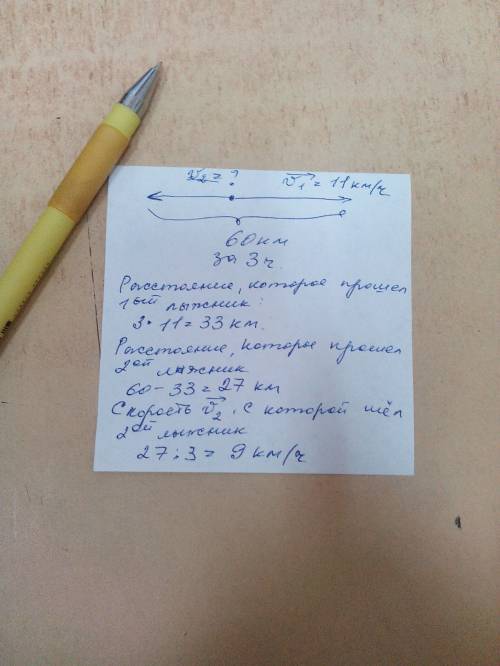 v₂ = ? v₁ = 11 км/ч
60 км
за 3 ч.
Расстояние, которое прошел
1ый лыжник:
3 · 11 = 33 км.
Расстояние, которое прошел
2ой лыжник
60 - 33 = 27 км
Скорость v₂, с которой шёл
2ой лыжник
27 : 3 = 9 км/ч